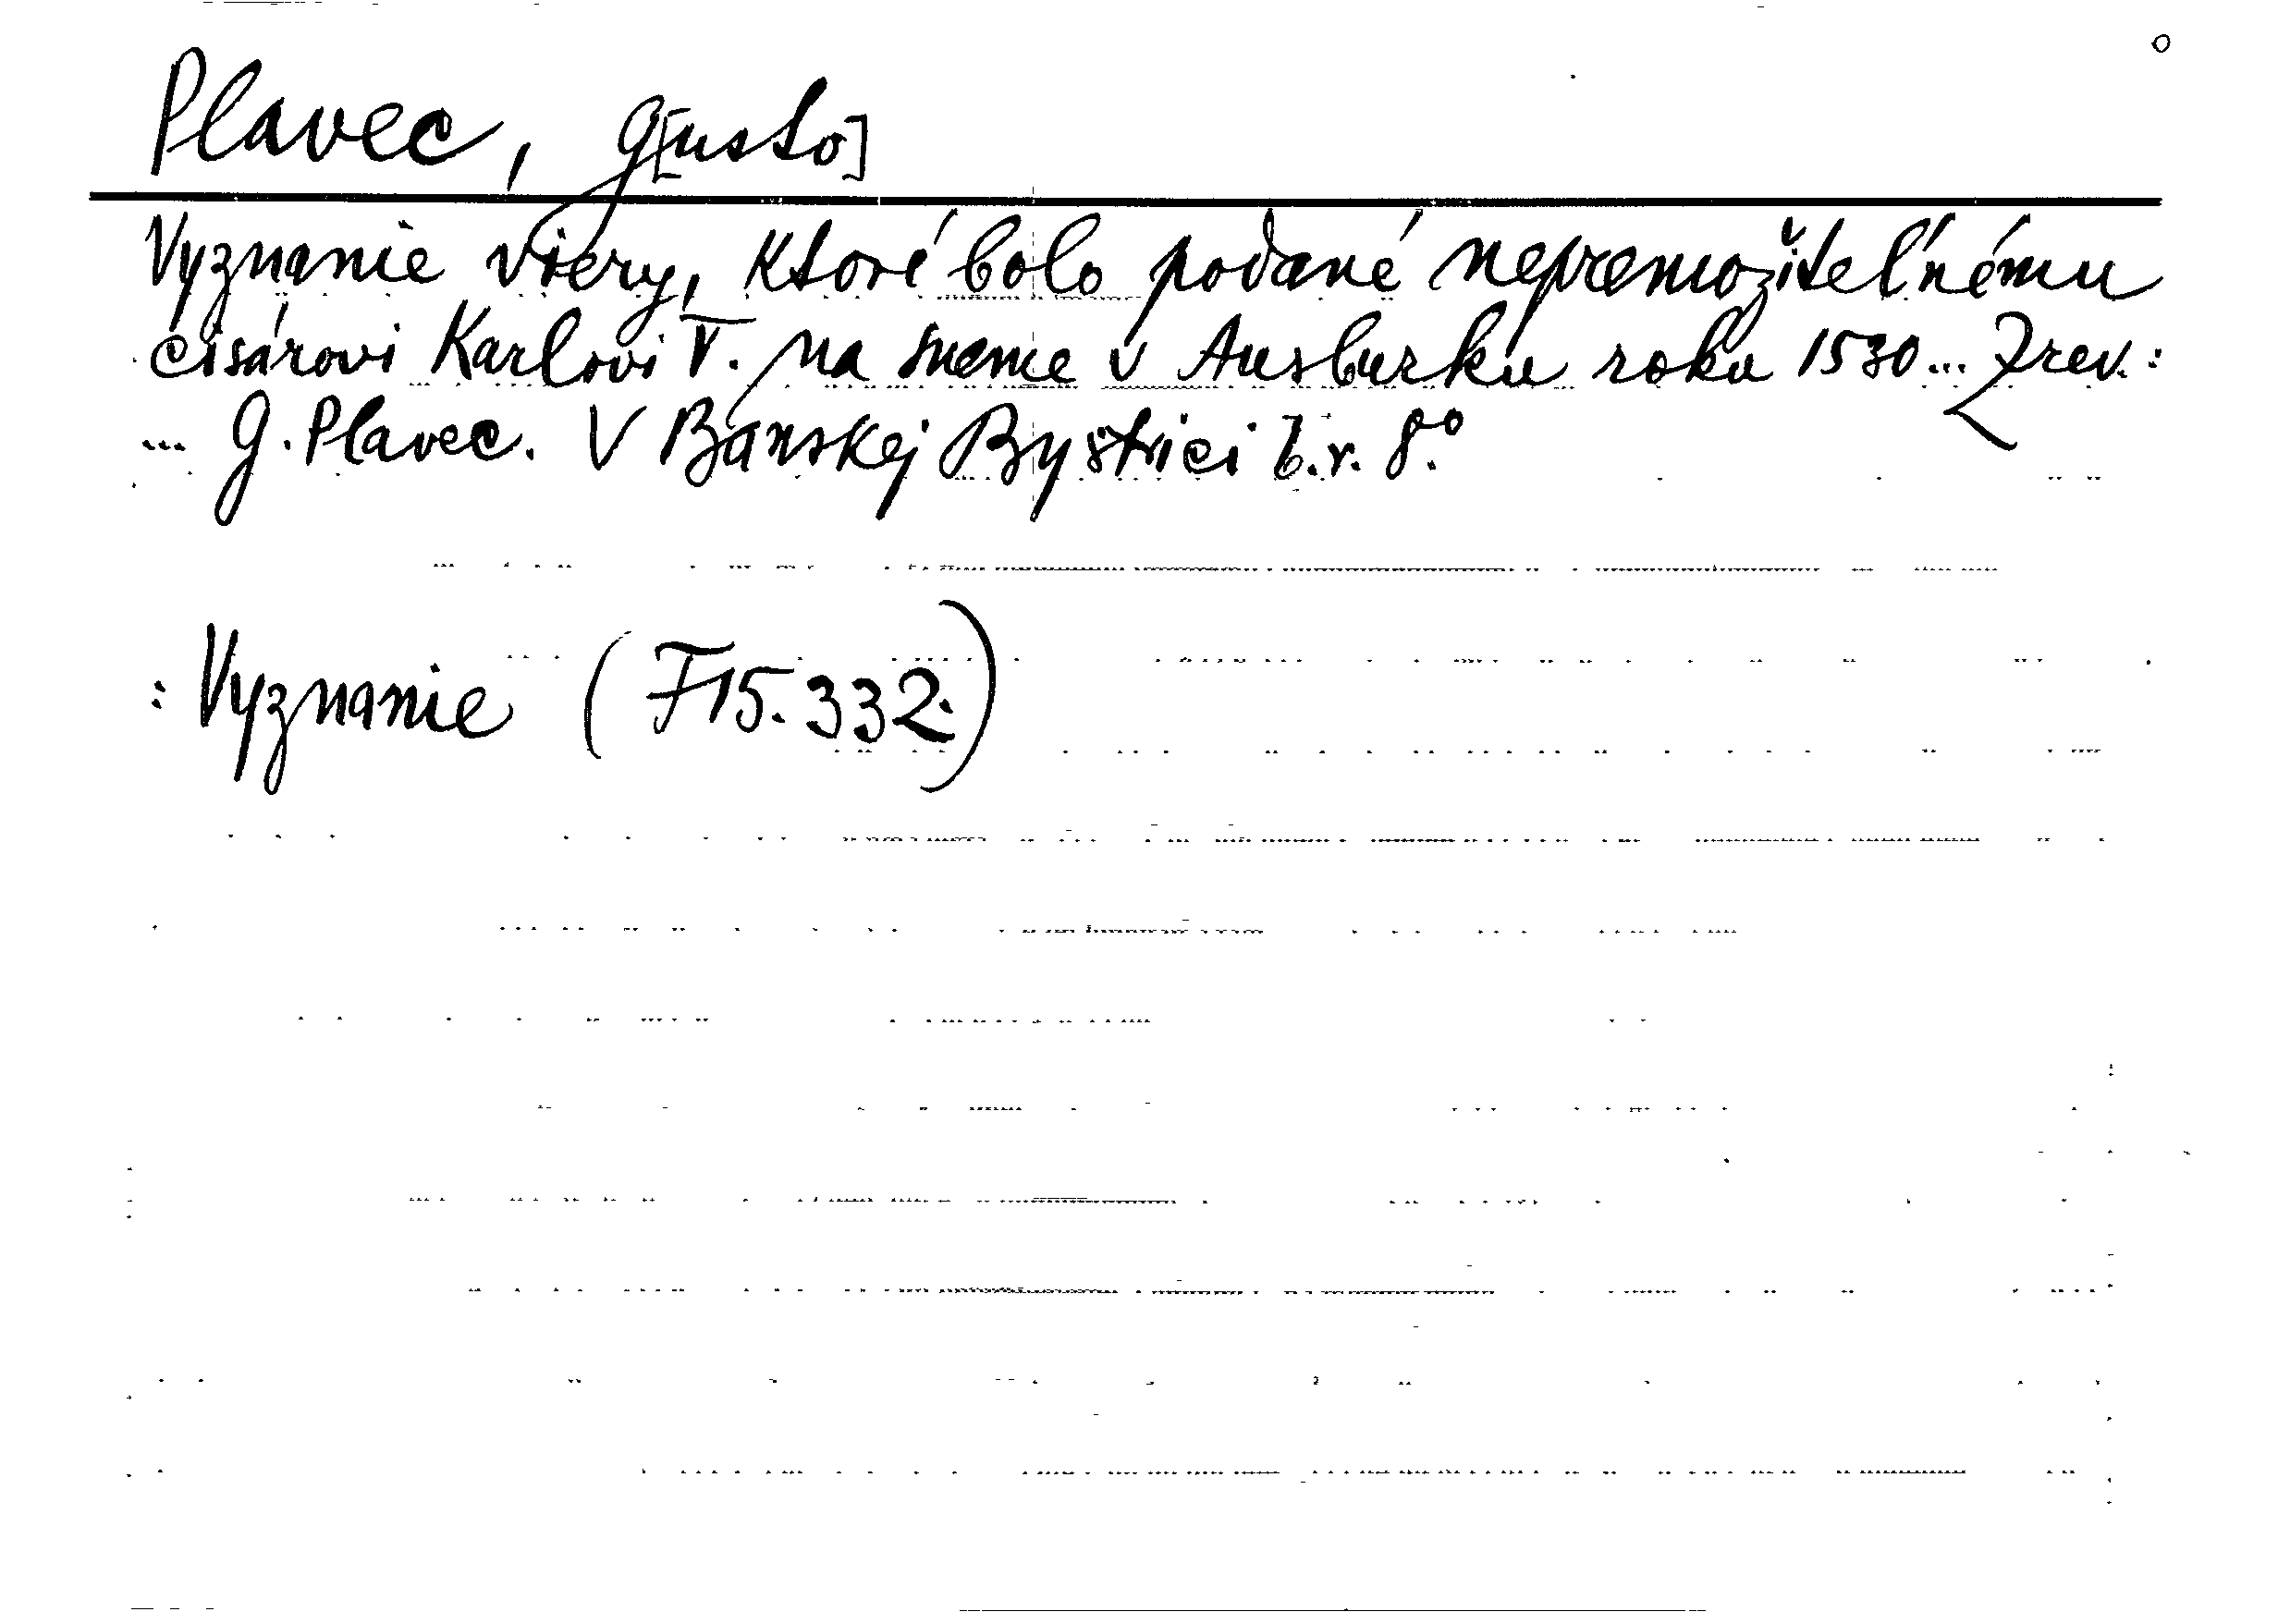 Plavec, G[usto]
Vyznanie viery, ktoré bolo podané nepremožiteľnému
cisárovi Karlovi V. na sneme v Ausburku roku 1530... Zrev.:
... G. Plavec. V Banskej Bystrici b.r. 8°
: Vyznanie (F15.332.)